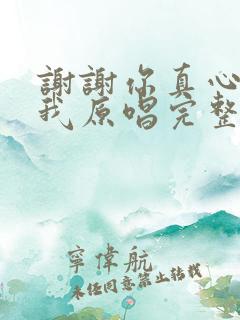 謝謝你真心
我原唱完整
寧偉航
未经同意禁止转载